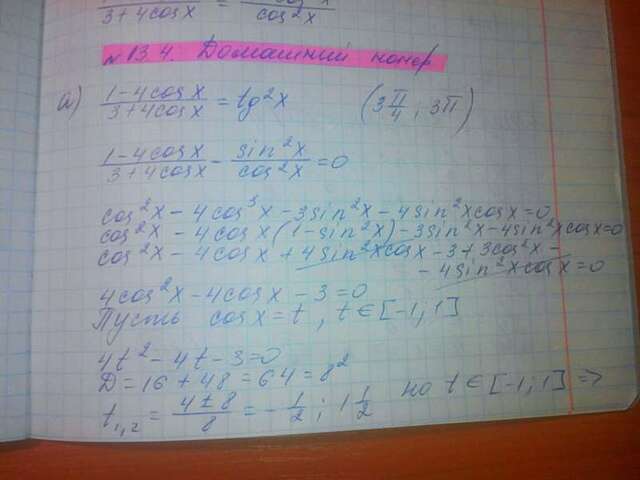 3+4cosx = cos²x
N 13.4. Домашний номер
а) (1-4cosx)/(3+4cosx) = tg²x (3π/4; 3π)
(1-4cosx)/(3+4cosx) - sin²x/cos²x = 0
cos²x - 4cos³x - 3sin²x - 4sin²xcosx = 0
cos²x - 4cosx(1-sin²x) - 3sin²x - 4sin²xcosx = 0
cos²x - 4cosx + 4sin²xcosx - 3 + 3cos²x -
- 4sin²xcosx = 0
4cos²x - 4cosx - 3 = 0
Пусть cosx = t, t ∈ [-1; 1]
4t² - 4t - 3 = 0
D = 16 + 48 = 64 = 8²
t₁,₂ = (4±8)/8 = -1/2; 1 1/2 но t ∈ [-1; 1] =>